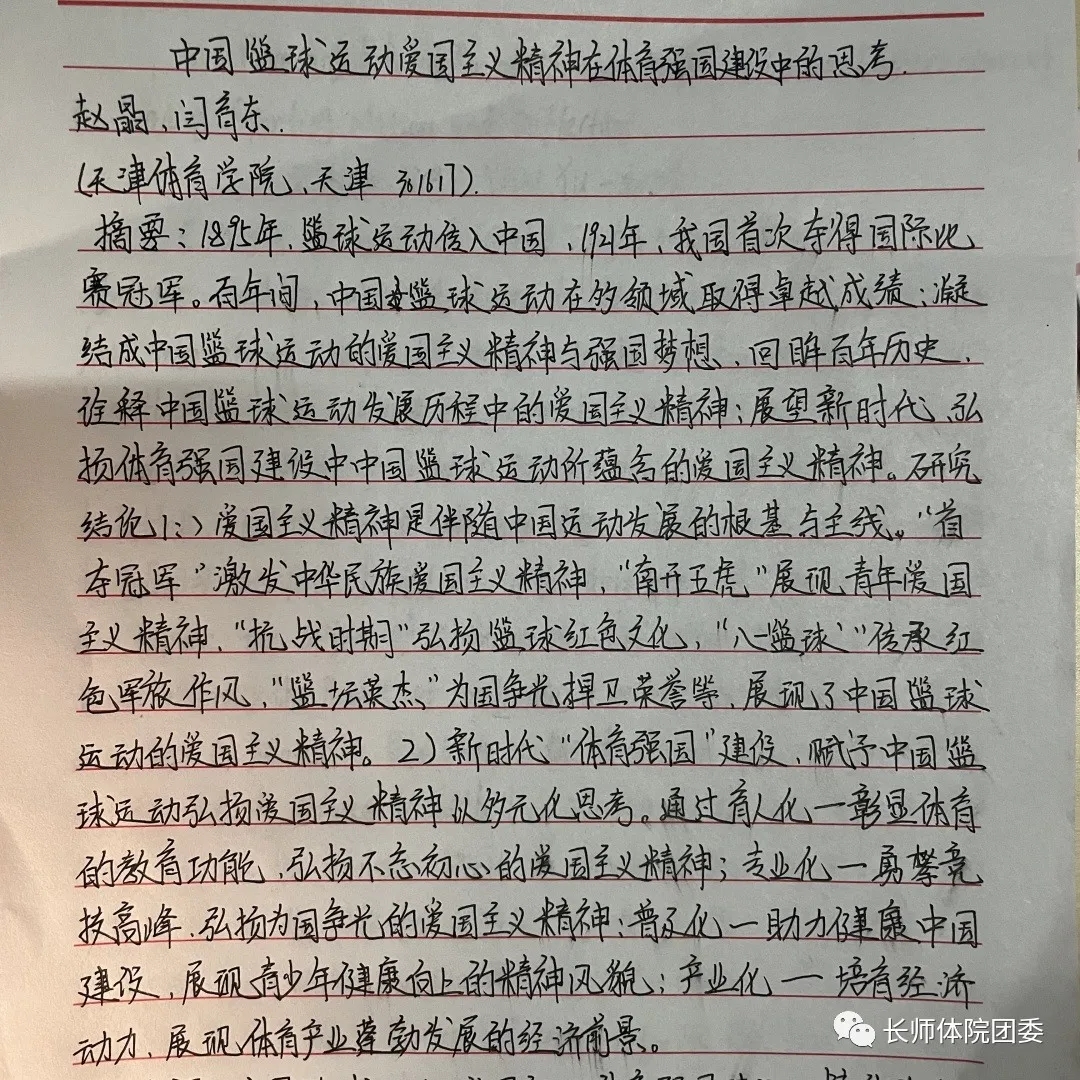 中国篮球运动爱国主义精神在体育强国建设中的思考.
赵晶、闫育东.
(天津体育学院、天津 301617).
摘要：1895年，篮球运动传入中国，1921年，我国首次夺得国际比
赛冠军。百年间，中国篮球运动在多领域取得卓越成绩；凝
结成中国篮球运动的爱国主义精神与强国梦想，回眸百年历史，
诠释中国篮球运动发展历程中的爱国主义精神；展望新时代，弘
扬体育强国建设中中国篮球运动所蕴含的爱国主义精神。研究
结论1:)爱国主义精神是伴随中国运动发展的根基与主线。“首
夺冠军”激发中华民族爱国主义精神，“南开五虎”展现青年爱国
主义精神，“抗战时期”弘扬篮球红色文化，“八一篮球”传承红
色军旅作风，“篮坛英杰”为国争光捍卫荣誉等，展现了中国篮球
运动的爱国主义精神。2)新时代“体育强国”建设，赋予中国篮
球运动弘扬爱国主义精神以多元化思考。通过育人化一彰显体育
的教育功能，弘扬不忘初心的爱国主义精神；专业化一勇攀竞
技高峰，弘扬为国争光的爱国主义精神；普及化一助力健康中国
建设，展现青少年健康向上的精神风貌；产业化一培育经济
动力，展现体育产业蓬勃发展的经济前景。
长师体院团委